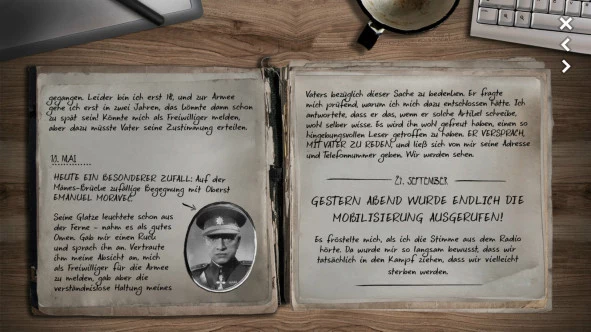 gegangen. Leider bin ich erst 18, und zur Armee
gehe ich erst in zwei Jahren, das könnte dann schon
zu spät sein! Könnte mich als Freiwilliger melden,
aber dazu müsste Vater seine Zustimmung erteilen.
10. MAI
HEUTE EIN BESONDERER ZUFALL: Auf der
Mánes-Brücke zufällige Begegnung mit Oberst
EMANUEL MORAVEC.
Seine Glatze leuchtete schon aus
der Ferne - nahm es als gutes
Omen. Gab mir einen Ruck
und sprach ihn an. Vertraute
ihm meine Absicht an, mich
als Freiwilliger für die Armee
zu melden, gab aber die
verständnislose Haltung meines
Vaters bezüglich dieser Sache zu bedenken. Er fragte
mich prüfend, warum ich mich dazu entschlossen hätte. Ich
antwortete, dass er das, wenn er solche Artikel schreibe,
wohl selber wisse. Es wird ihn wohl gefreut haben, einen so
hingebungsvollen Leser getroffen zu haben. ER VERSPRACH,
MIT VATER ZU REDEN, und ließ sich von mir seine Adresse
und Telefonnummer geben. Wir werden sehen.
21. SEPTEMBER
GESTERN ABEND WURDE ENDLICH DIE
MOBILISIERUNG AUSGERUFEN!
Es fröstelte mich, als ich die Stimme aus dem Radio
hörte. Da wurde mir so langsam bewusst, dass wir
tatsächlich in den Kampf ziehen, dass wir vielleicht
sterben werden.